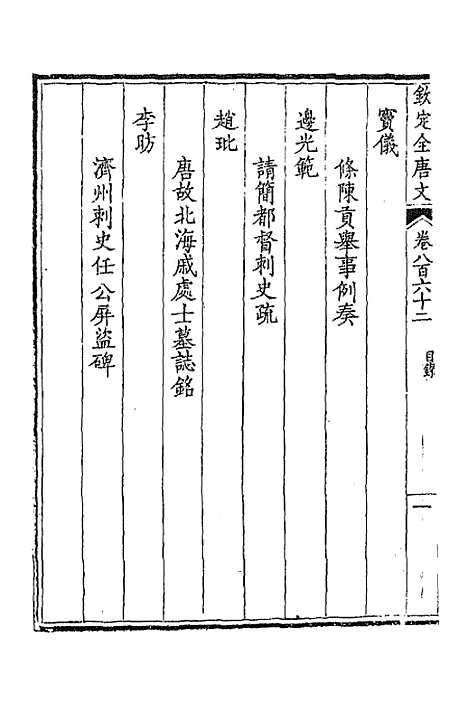 欽定全唐文
卷八百六十二
目錄
一
竇儀
條陳貢舉事例奏
邊光範
請簡都督刺史疏
趙玭
唐故北海戚處士墓誌銘
李昉
濟州刺史任公屏盜碑